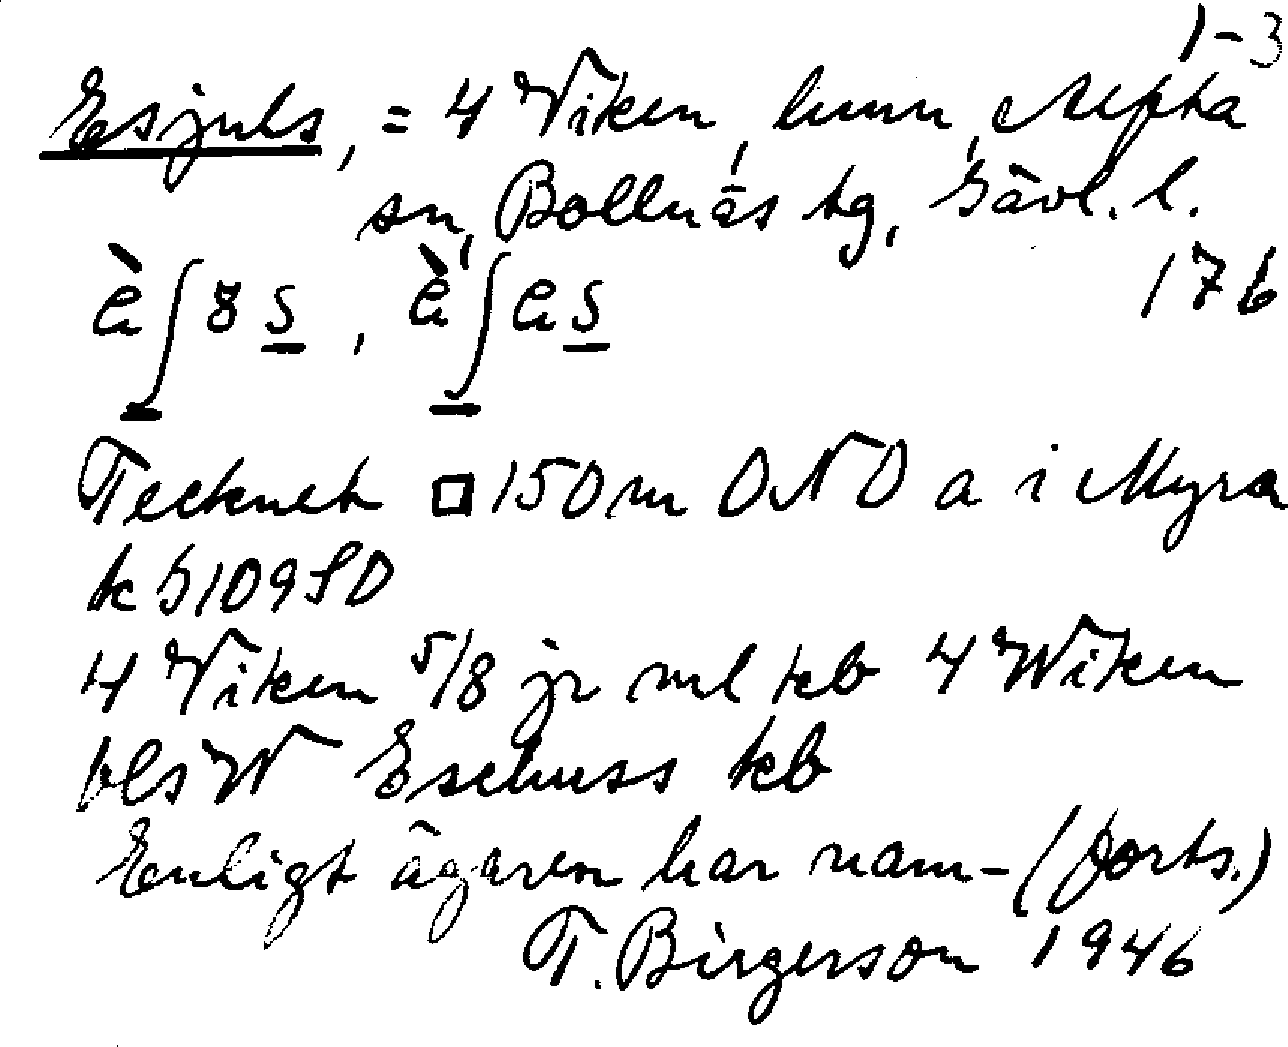 1-3
Esjuls, = 4 Viken, hmn, Alfta
sn, Bollnäs tg, Gävl. l.
176
Tecknet □ 150 m ONO a i Myra
k G109SO
4 Viken 5/8 jr ml kb 4 Wiken
bls W Eschuss kb
Enligt ägaren har nam- (forts.)
T. Birgerson 1946